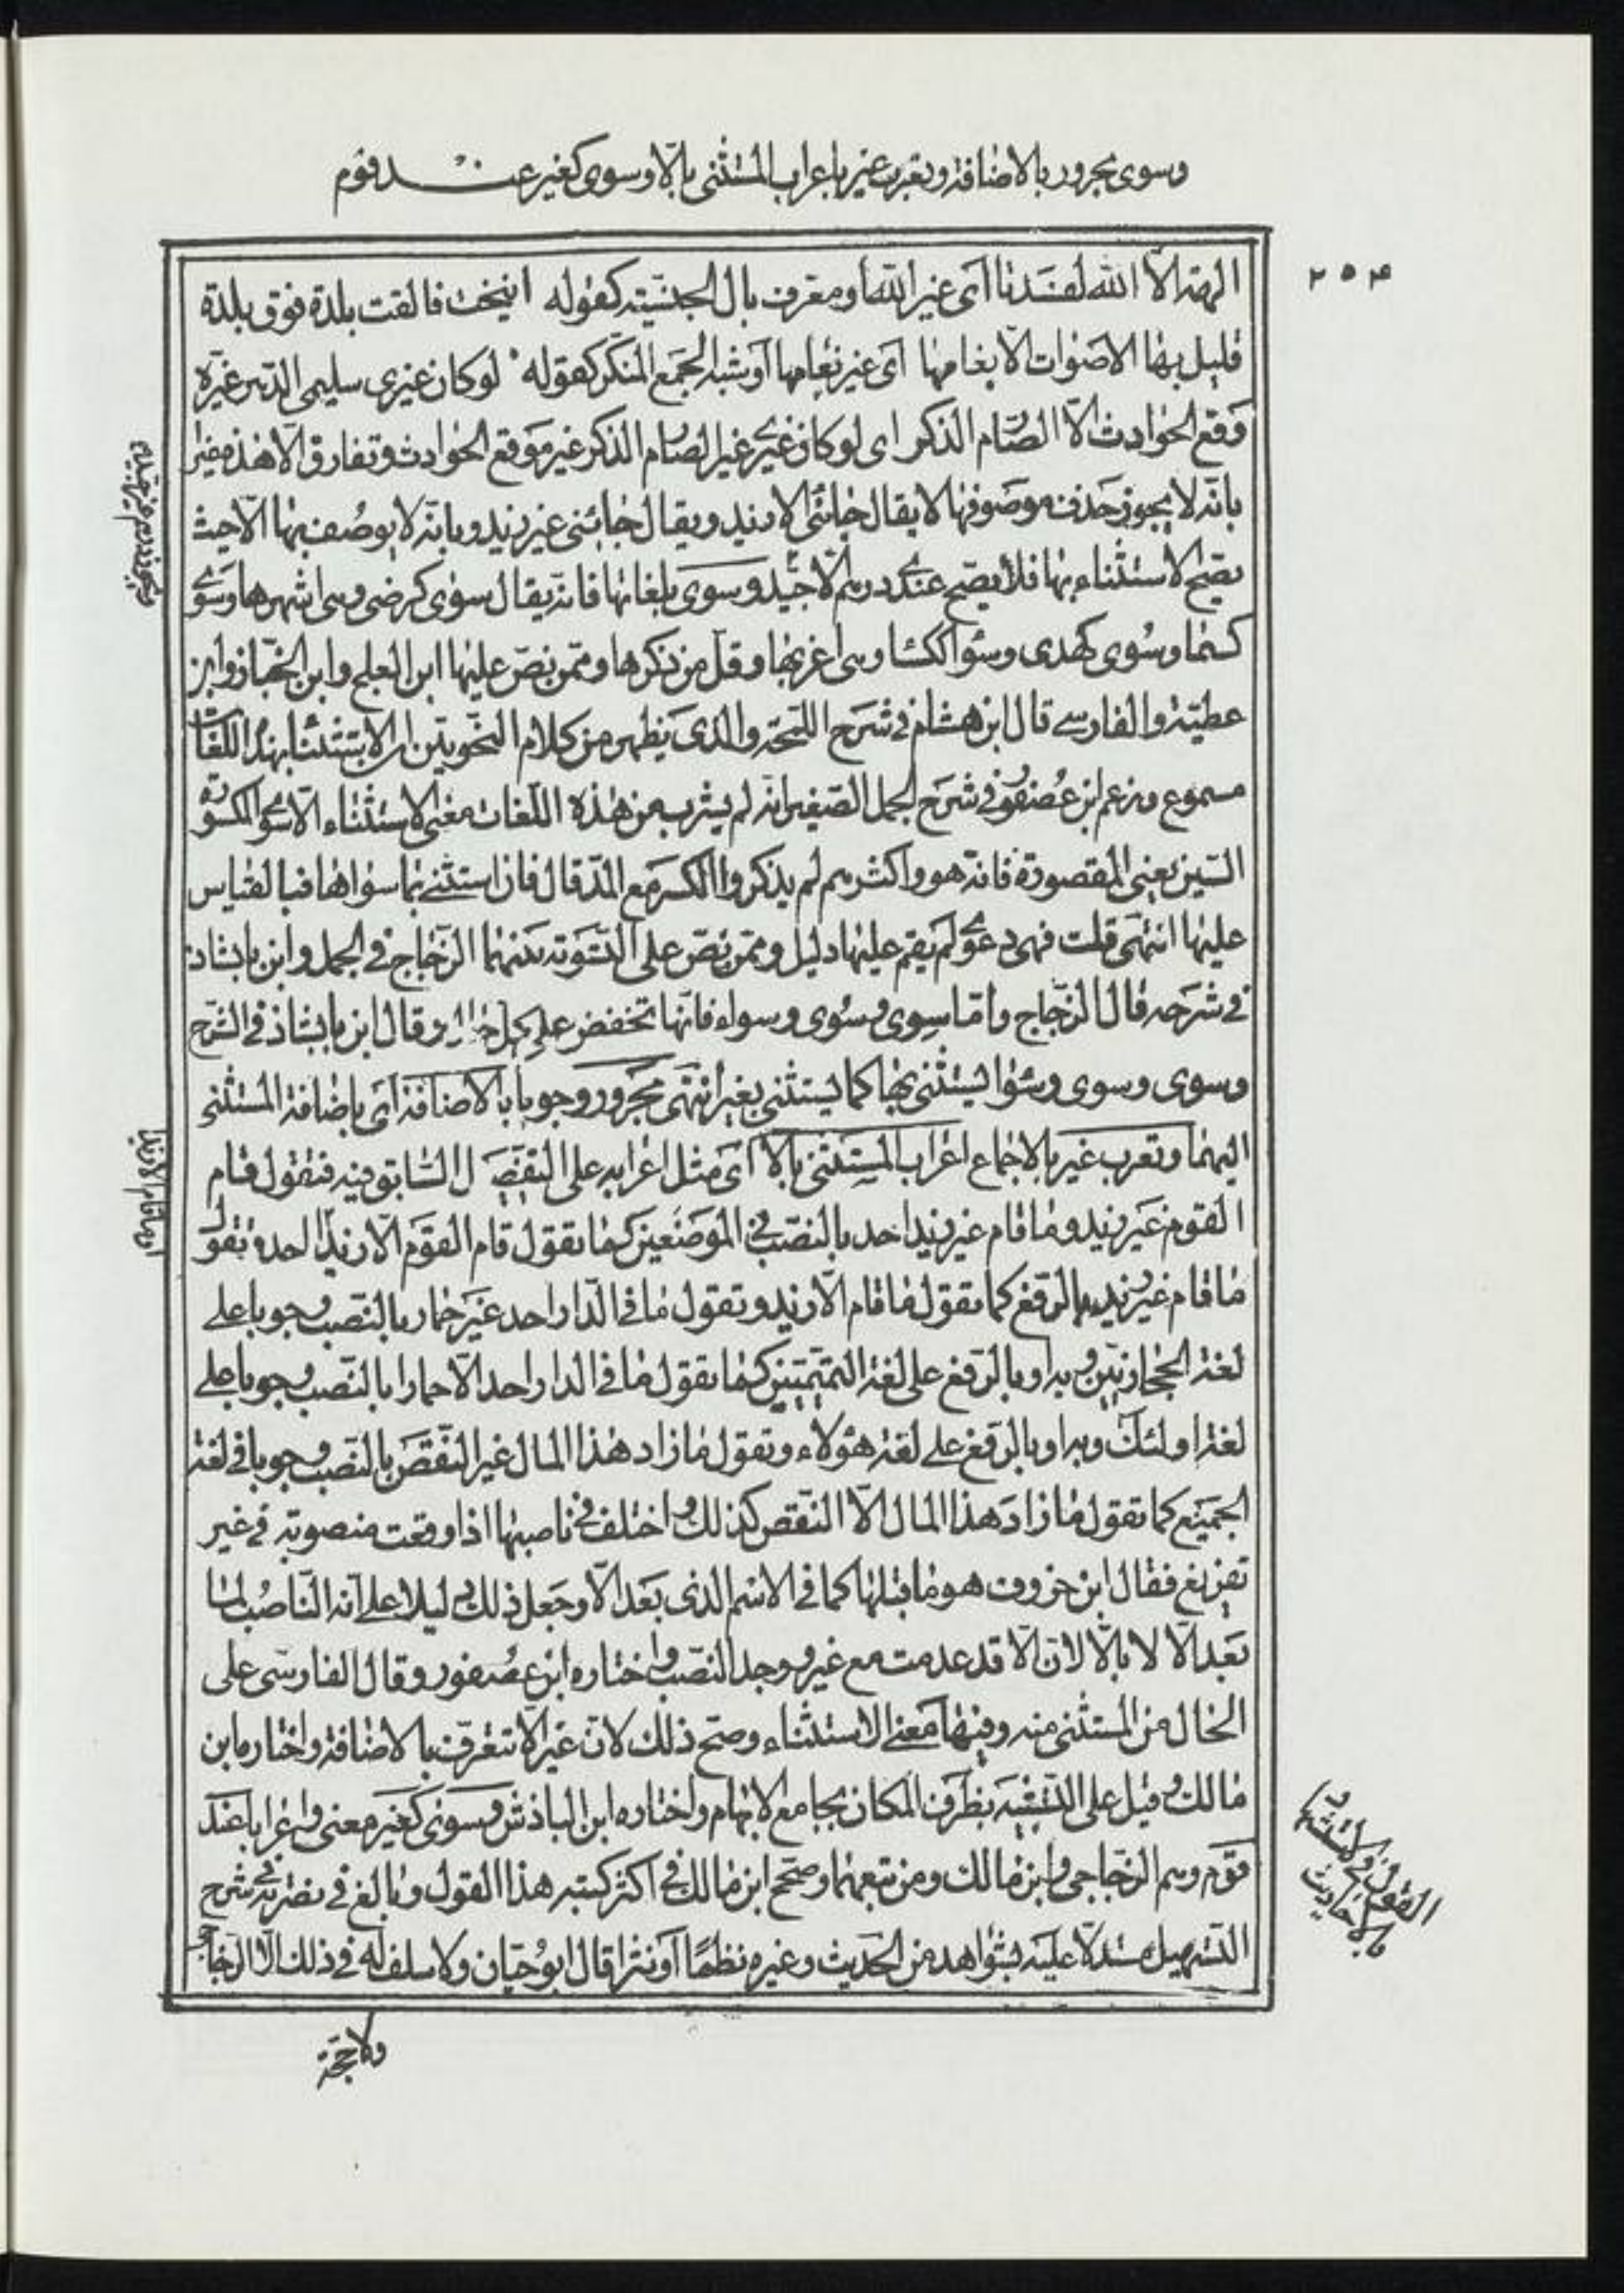 وسوى مجرور بالاضافة ويعرب غير باعراب المستثنى بالّا وسوى كغير عنـــد قوم
٢٥٤
الهة الّا الله لفسدتا اى غير الله او معرف بال الجنسيّة كقوله انيخت فالقت بلدة فوق بلدة
قليل بها الاصوات الّا بغامها اى غير بغامها او بشبه الجمع المنكر كقوله لو كان غيرى سليمى الدّهر غيّره
وقع الحوادث الّا الصّارم الذكر اى لو كان غيرى غير الصّارم الذكر غيره وقع الحوادث وتفارق الّا هذه غيرا
بانّه لا يجوز حذف موصوفها لا يقال جائنى الّا زيد ويقال جائنى غير زيد وبانّه لا يوصف بها الّا حيث
يصحّ الاستثناء بها فلا يصح عندى درهم الّا جيّد وسوى بلغاتها فانّه يقال سوى كرضى وهى اشهرها وسوى
كسما وسُوى كهدى وسواء ككساء وهى اغربها وقلّ من ذكرها وممّن نصّ عليها ابن العلج وابن الخبّاز وابن
عطيّة والفارسے قال ابن هشام فى شرح اللّمحة والّذى يظهر من كلام النّحويّين ان الاستثناء بهذه اللّغات
مسموع وزعم ابن عصفور فى شرح الجمل الصّغير انّه لم يشرب من هذه اللّغات معنى الاستثناء الّا سوى المكسورة
السّين يعنى المقصورة فانّه هو واكثرهم لم يذكروا الكسر مع المدّ قال فان استثنى بما سواها فبالقياس
عليها انتهى قلت فهى دعوى لم يقم عليها دليل وممّن نصّ على التسوية بينهما الزّجّاج فى الجمل وابن بابشاذ
فى شرحه قال الزّجّاج وامّا سِوى وسُوى وسواء فانّها تخفض على كل حال وقال ابن بابشاذ فى الشّرح
وسوى وسوى وسواء يستثنى بها كما يستثنى بغير انتهى مجرور وجوبا بالاضافة اى باضافة المستثنى
اليهما وتعرب غير بالاجماع اعراب المستثنى بالّا اى مثل اعرابه على التّفصيل السّابق فيه فتقول قام
القوم غير زيد وما قام غير زيد احد بالنصب فى الموضعين كما تقول قام القوم الّا زيدا احد وتقول
ما قام غير زيد بالرّفع كما تقول ما قام الّا زيد وتقول ما فى الدّار احد غير حمار بالنّصب وجوبا على
لغة الحجازيّين وبه او بالرّفع على لغة التميميّين كما تقول ما فى الدار احد الّا حمارا بالنّصب وجوبا على
لغة اولئك وبه او بالرّفع على لغة هؤلاء وتقول ما زاد هذا المال غير النّقص بالنّصب وجوبا فى لغة
الجميع كما تقول ما زاد هذا المال الّا النّقص كذلك واختلف فى ناصبها اذا وقعت منصوبة فى غير
تفريغ فقال ابن خروف هو ما قبلها كما فى الاسم الذى بعد الّا وجعل ذلك دليلا على انّه النّاصب لما
بعد الّا لا بالّا لانّ الّا قد عدمت مع غير ووجد النّصب واختاره ابن عصفور وقال الفارسّى على
الحال من المستثنى منه وفيها معنى الاستثناء وصحّ ذلك لانّ غير لا تتعرّف بالاضافة واختاره ابن
مالك وقيل على التّشبيه بظرف المكان بجامع الابهام واختاره ابن الباذش وسوى كغير معنى واعرابا عند
قوم وهم الزجّاجى وابن مالك ومن تبعهما وصحّح ابن مالك فى اكثر كتبه هذا القول وبالغ فى نصرته فى شرح
التسهيل مستدلّا عليه بشواهد من الحديث وغيره نظمًا او نثرا قال ابو حيّان ولا سلف له فى ذلك الّا الزجّاجى
ولا حجّة